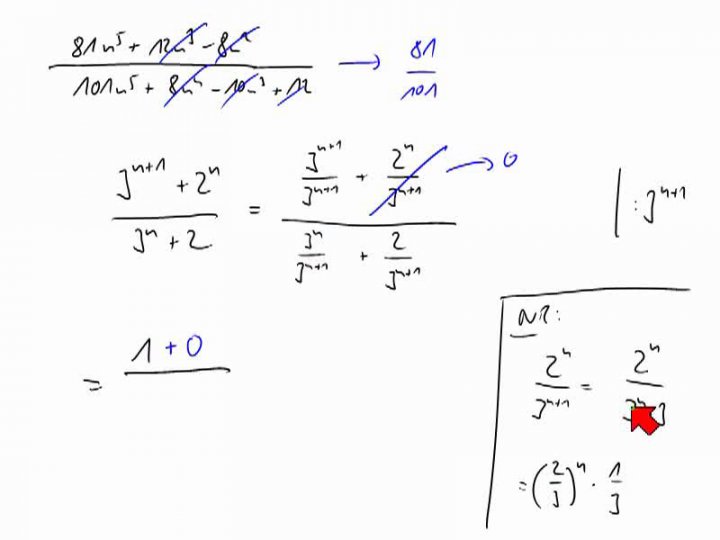 81n⁵ + 12n³ - 8n² / 101n⁵ + 8n⁴ - 10n³ + 12 → 81/101
3ⁿ⁺¹ + 2ⁿ / 3ⁿ + 2 = (3ⁿ⁺¹/3ⁿ⁺¹ + 2ⁿ/3ⁿ⁺¹) / (3ⁿ/3ⁿ⁺¹ + 2/3ⁿ⁺¹) → 0 | : 3ⁿ⁺¹
= 1 + 0
NR:
2ⁿ/3ⁿ⁺¹ = 2ⁿ/3ⁿ·3
= (2/3)ⁿ · 1/3